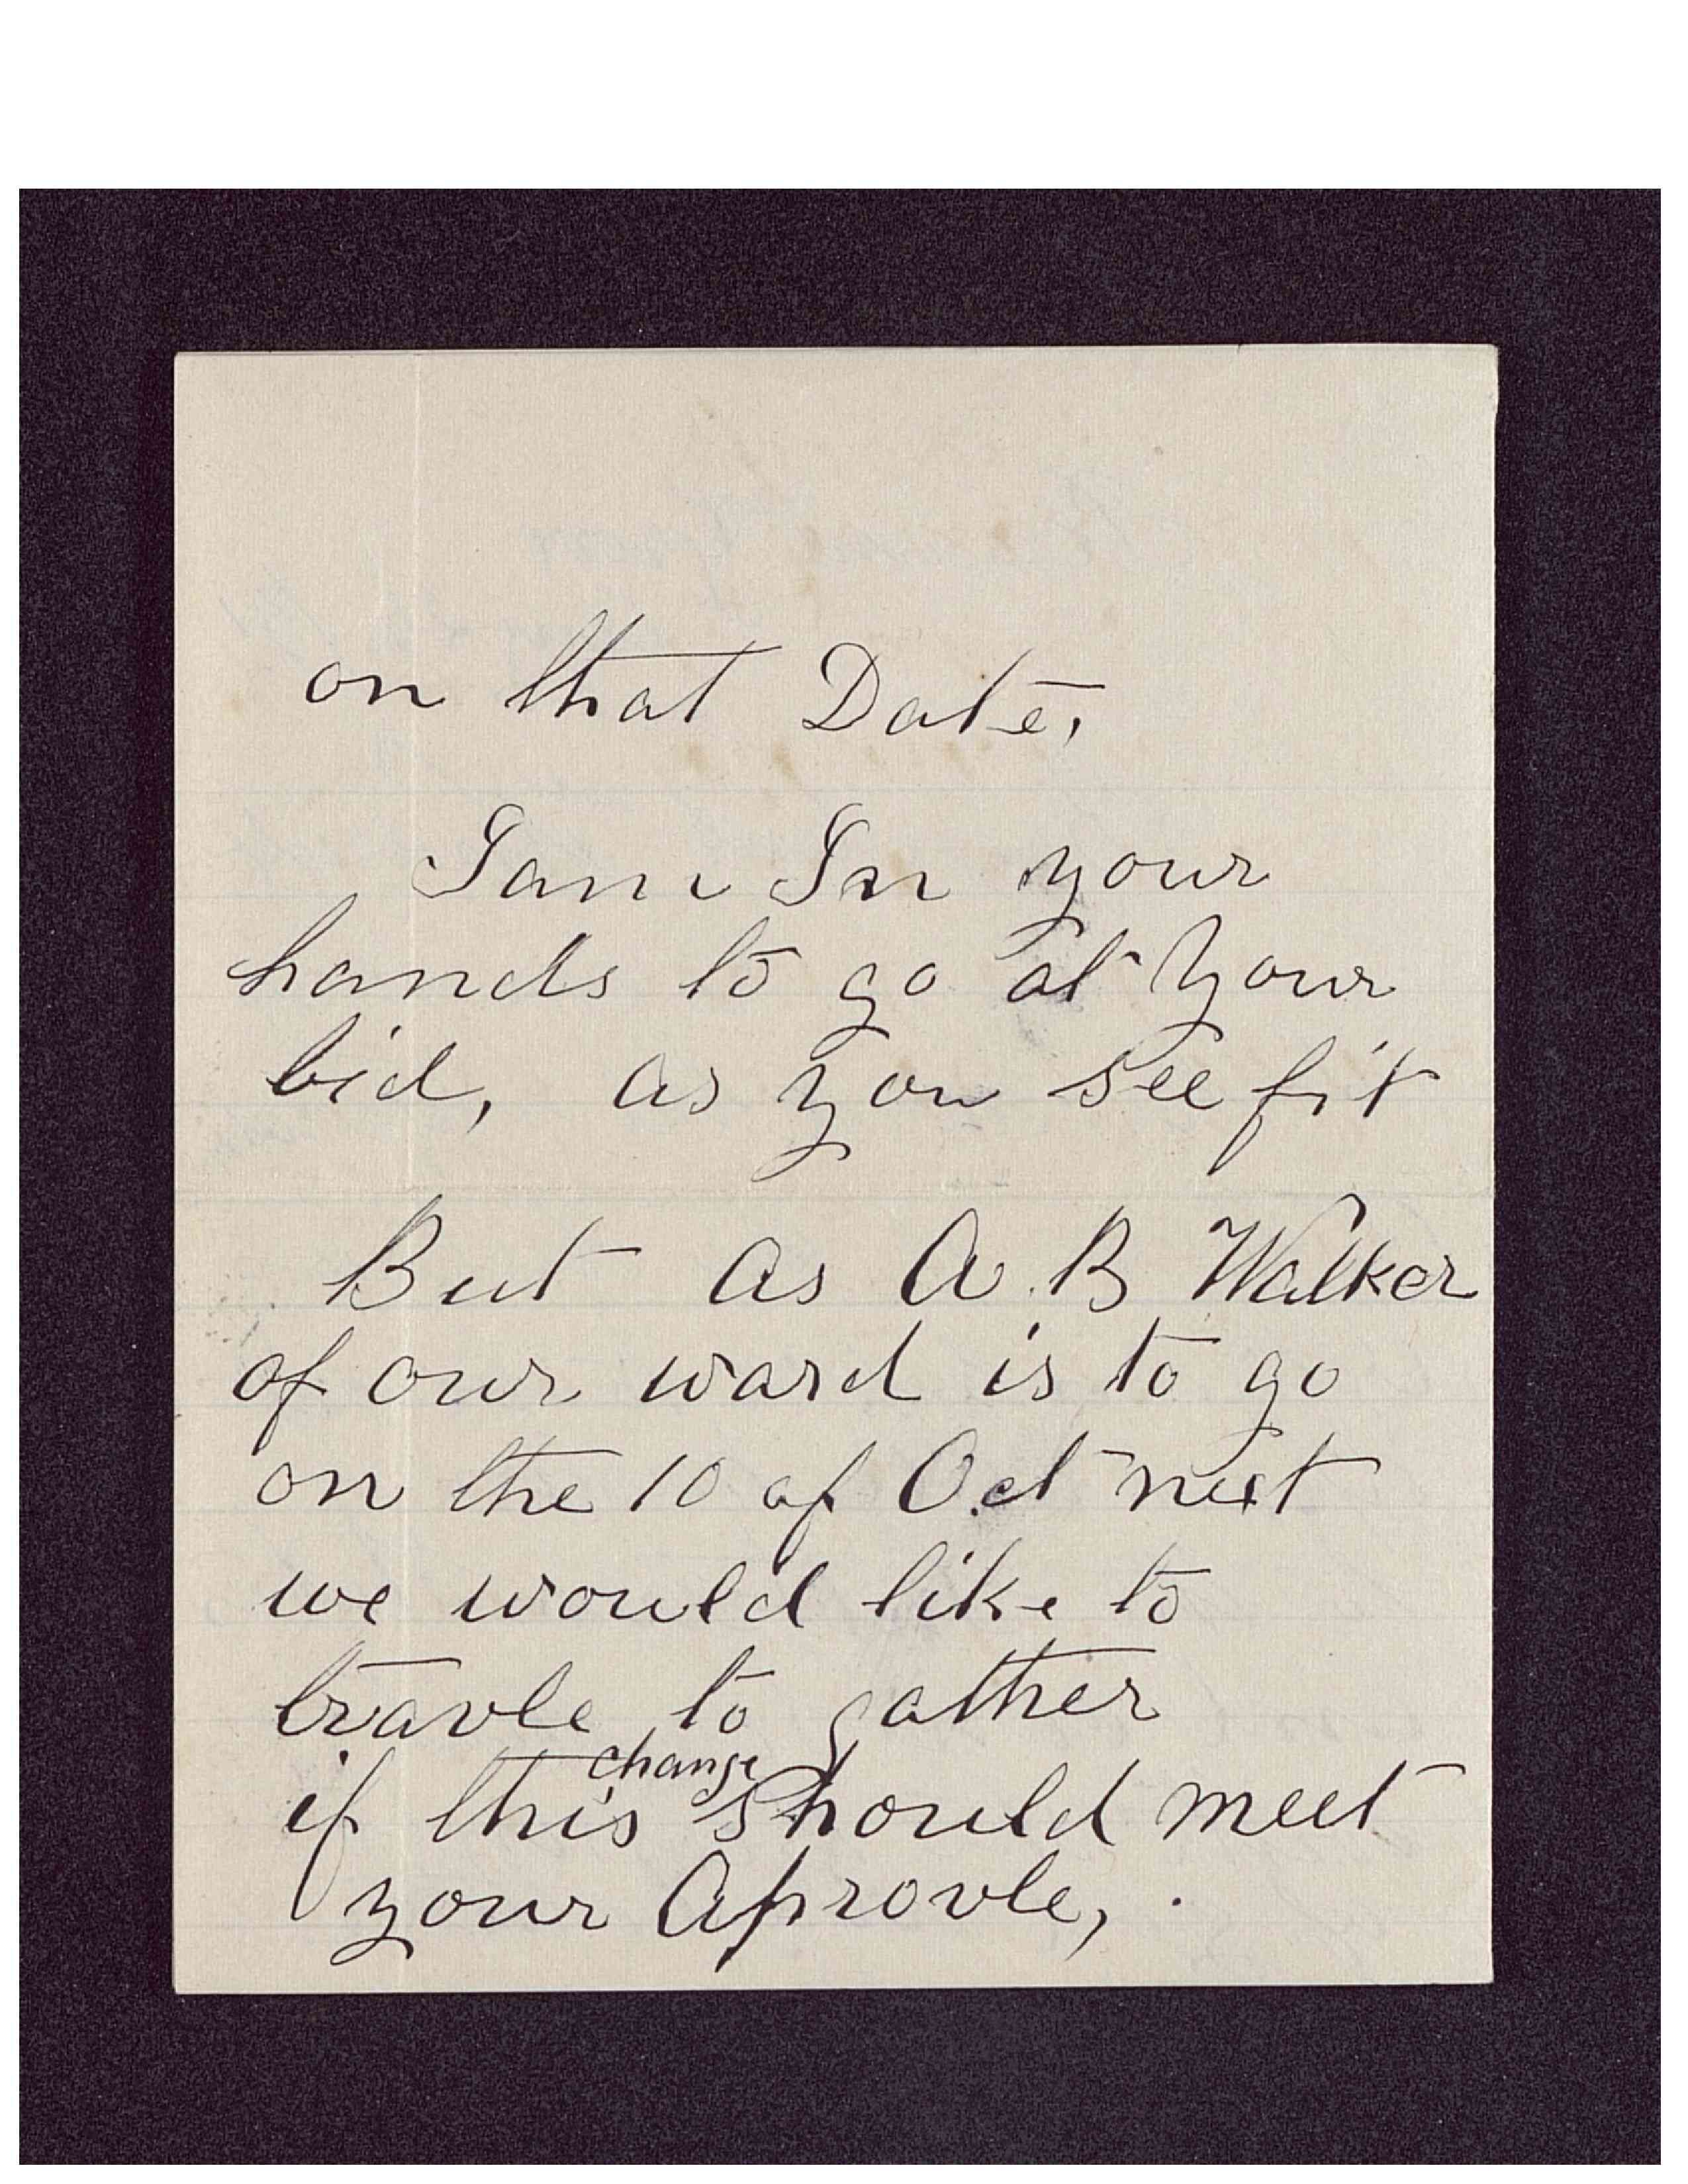 on that Date,
I am In your
hands to go at your
bid, as you see fit
But as A. B Walker
of our ward is to go
on the 10 of Oct next
we would like to
travle to gather
change
if this should meet
your Aprovle,